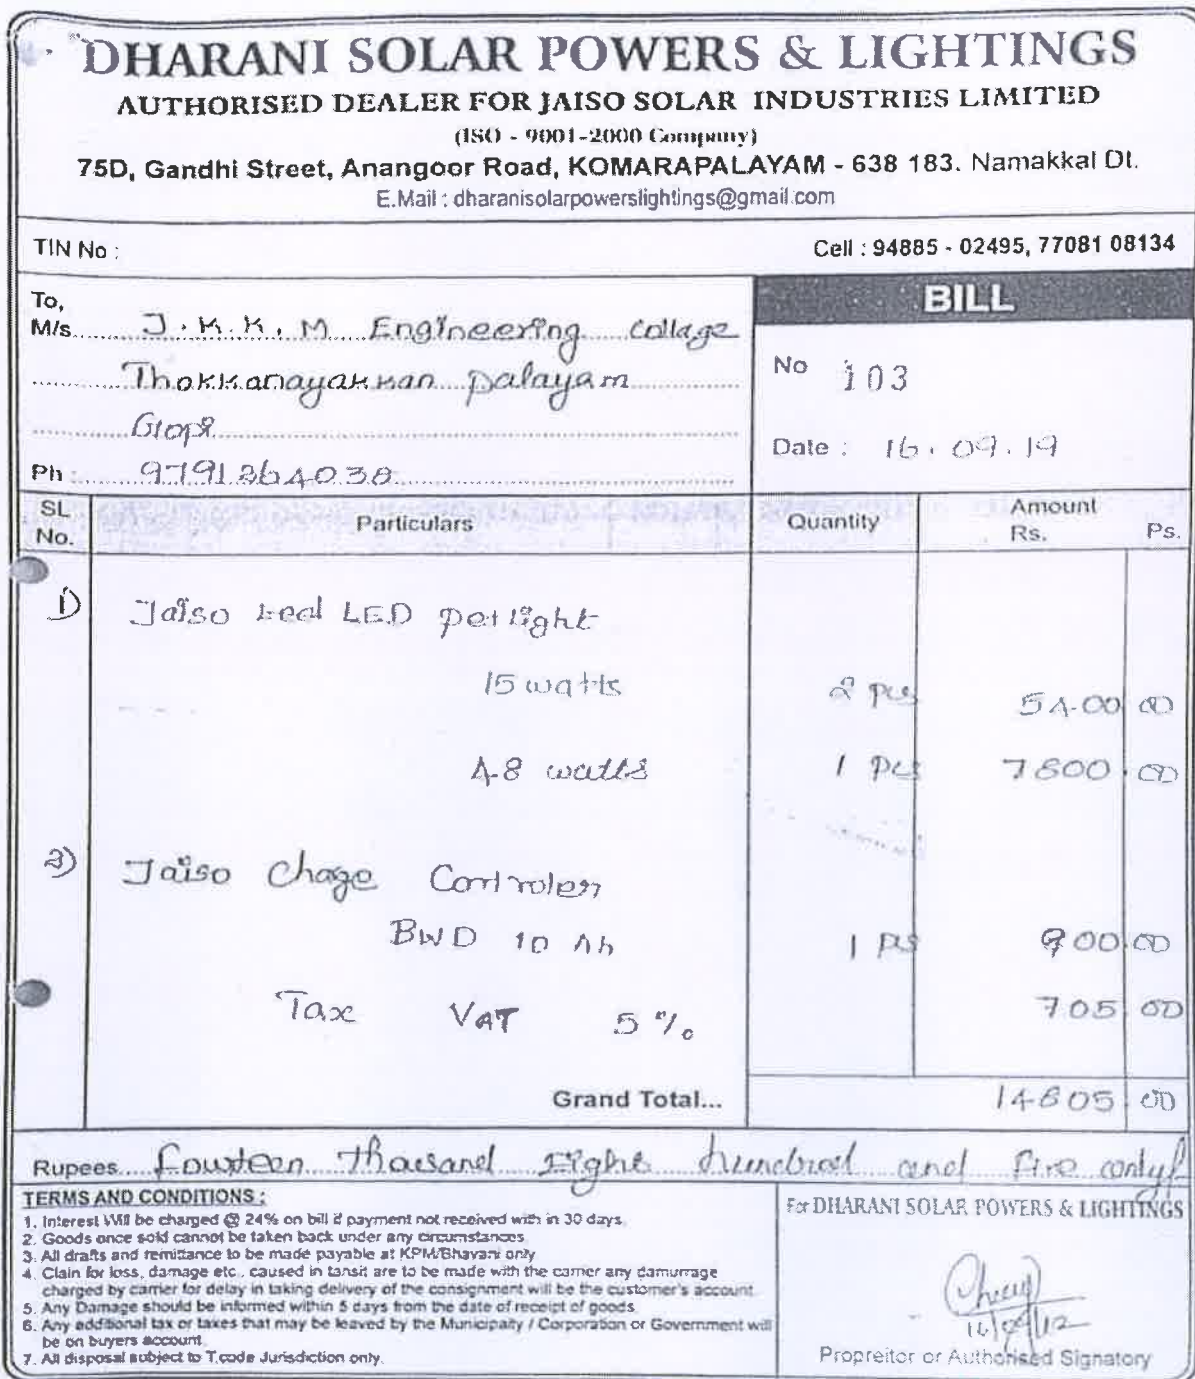 DHARANI SOLAR POWERS & LIGHTINGS
AUTHORISED DEALER FOR JAISO SOLAR INDUSTRIES LIMITED
(ISO - 9001-2000 Company)
75D, Gandhi Street, Anangoor Road, KOMARAPALAYAM - 638 183. Namakkal Dt.
E.Mail : dharanisolarpowerslightings@gmail.com
TIN No :
Cell : 94885 - 02495, 77081 08134
To,
M/s. J.K.K.M Engineering Collage
Thokkanayakkan palayam
Gopi
Ph : 9791264038
BILL
No 103
Date : 16.09.19
SL No. Particulars Quantity Amount Rs. Ps.
1) Jaiso LED petlight
15 watts 2 pcs 5400 00
48 watts 1 pcs 7800 00
2) Jaiso Chage Controler
BWD 10 Ah 1 ps 900 00
Tax VAT 5 % 705 00
Grand Total... 14805 00
Rupees Fourteen thousand Eight hundred and Five only/
TERMS AND CONDITIONS :
1. Interest Will be charged @ 24% on bill if payment not received with in 30 days.
2. Goods once sold cannot be taken back under any circumstances.
3. All drafts and remittance to be made payable at KPM/Bhavani only
4. Clain for loss, damage etc., caused in tansit are to be made with the carrier any damurrage
charged by carrier for delay in taking delivery of the consignment will be the customer's account.
5. Any Damage should be informed within 5 days from the date of receipt of goods.
6. Any additional tax or taxes that may be leaved by the Municipaity / Corporation or Government will
be on buyers account.
7. All disposal subject to T.code Jurisdiction only.
For DHARANI SOLAR POWERS & LIGHTINGS
Propreitor or Authorised Signatory